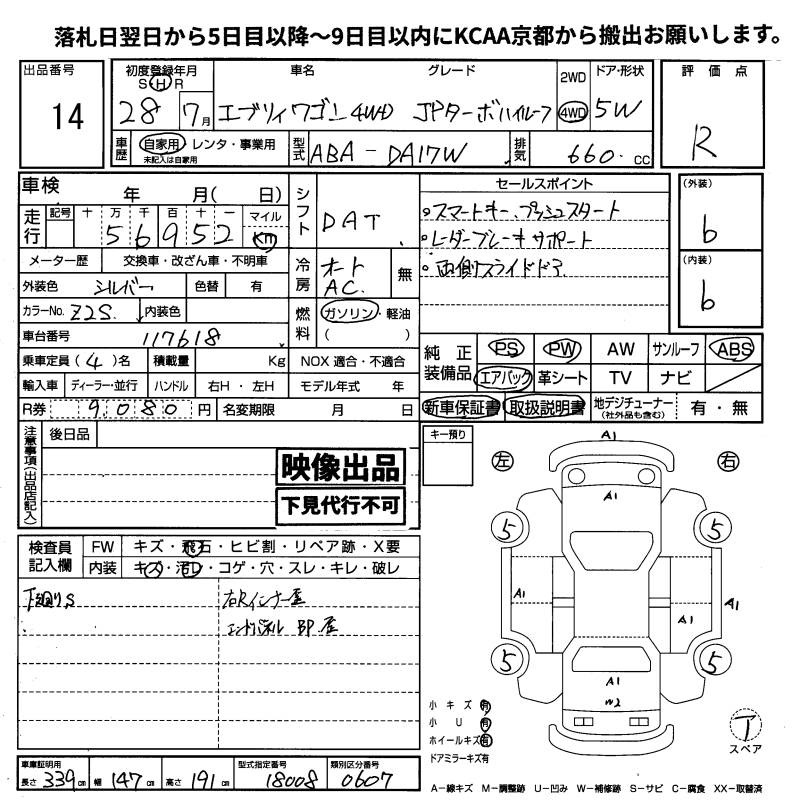 落札日翌日から5日目以降〜9日目以内にKCAA京都から搬出お願いします。
出品番号 14
初度登録年月 S H R 28 7月
車名 グレード エブリィワゴン 4WD JPターボハイルーフ
2WD 4WD
ドア・形状 5W
評価点 R
車歴 自家用・レンタ・事業用 未記入は自家用
型式 ABA-DA17W
排気 660. cc
車検 年 月( 日)
走行 記号 十 万 千 百 十 一 マイル
5 6 9 5 2 km
シフト DAT
セールスポイント
・スマートキー、プッシュスタート
・レーダーブレーキサポート
・両側スライドドア
(外装) b
(内装) b
メーター歴 交換車・改ざん車・不明車
外装色 シルバー 色替 有
冷房 オート AC. 無
カラーNo. Z2S. 内装色
燃料 ガソリン・軽油 ( )
車台番号 117618
乗車定員(4)名 積載量 Kg NOX 適合・不適合
純正装備品 PS PW AW サンルーフ ABS
エアバック 革シート TV ナビ
輸入車 ディーラー・並行 ハンドル 右H・左H モデル年式 年
R券 9,080 円 名変期限 月 日
新車保証書 取扱説明書 地デジチューナー (社外品も含む) 有・無
注意事項(出品店記入) 後日品
映像出品
下見代行不可
キー預り
左 右
A1
A1
5 5
A1 A1 A1
5 5
A1
W2
検査員記入欄 FW キズ・飛石・ヒビ割・リペア跡・X要
内装 キズ・汚レ・コゲ・穴・スレ・キレ・破レ
下廻りS 右Rインナー歪
エンドパネル BP歪
小キズ 有
小U 有
ホイールキズ 有
ドアミラーキズ有
ア スペア
車庫証明用 長さ 339cm 幅 147cm 高さ 191cm 型式指定番号 18008 類別区分番号 0607
A−線キズ M−調整跡 U−凹み W−補修跡 S−サビ C−腐食 XX−取替済